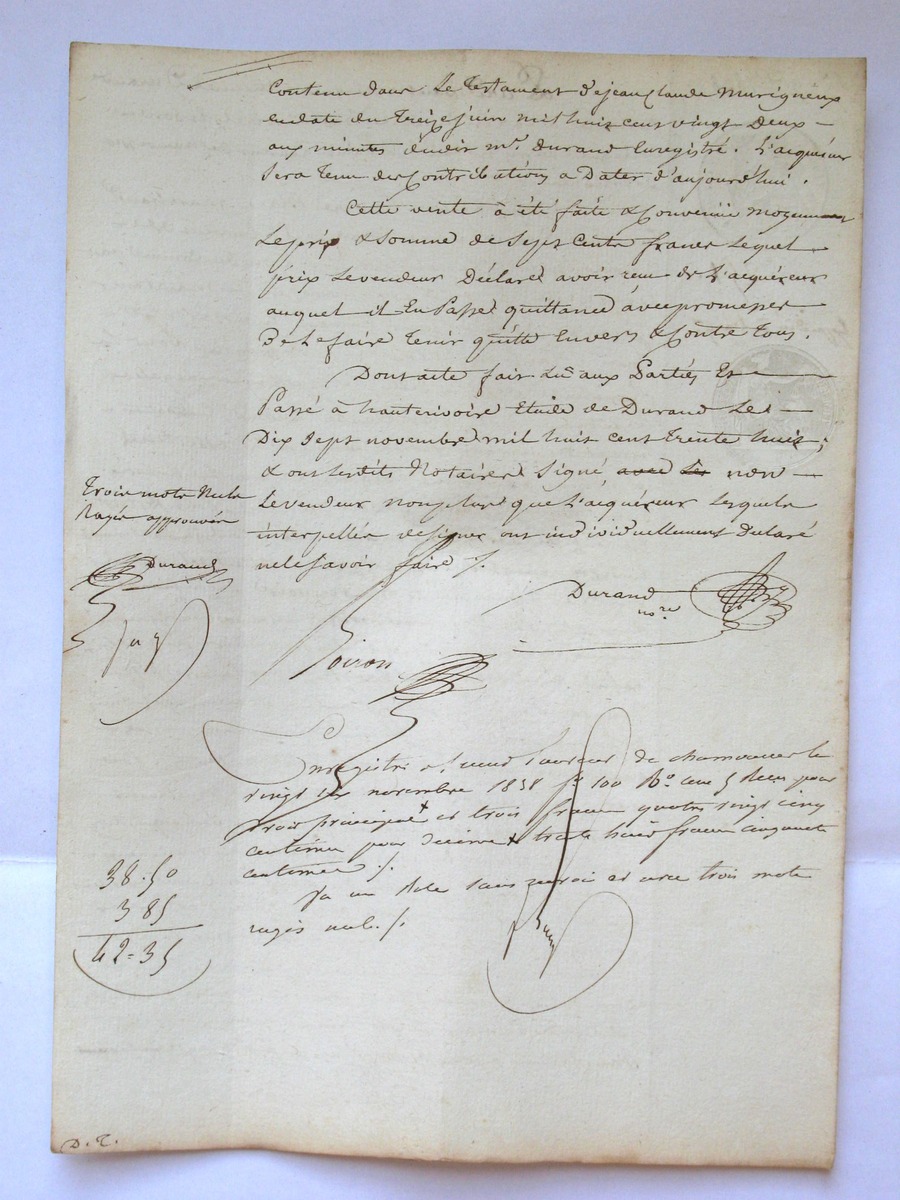 Contenu dans Le Testament de jean Claude Murigneux
en date du Treize juin mil huit cent vingt Deux –
aux minutes dudit Mr. Durand Enregistré. L'acquéreur
Sera Tenu des Contributions a Dater d'aujourd'hui.
Cette vente à été faite & Convenüe moyennant
Le prix & Somme de Sept Cents francs Lequel
prix Le vendeur Déclare avoir reçu de L'acquéreur
auquel il En Passe quittance avec promesse
De Le faire Tenir quitte Envers & Contre Tous.
Dont acte fait Lu aux Parties Et
Passé à hauterivoire Etude de Durand Le
Dix Sept novembre mil huit cent Trente huit;
& ont Lesdits Notaires Signé, avec Les non
Le vendeur non plus que L'acquéreur Lesquels
interpellés de Signer ont individuellement Déclaré
ne le Savoir faire /.
Trois mots Nuls
Rayés approuvés
Durand
Durand
nore
Poiron
Enregistré à de chamousset le
vingt novembre 1838 fo 100 Ro cases 5 pour
droit principal et trois francs quatre vingt cinq
centimes pour décime + trente huit francs cinquante
centimes /.
Ya un Role sans renvoi et avec trois mots
rayés nuls. /.
38.50
3 85
42=35
D. T.